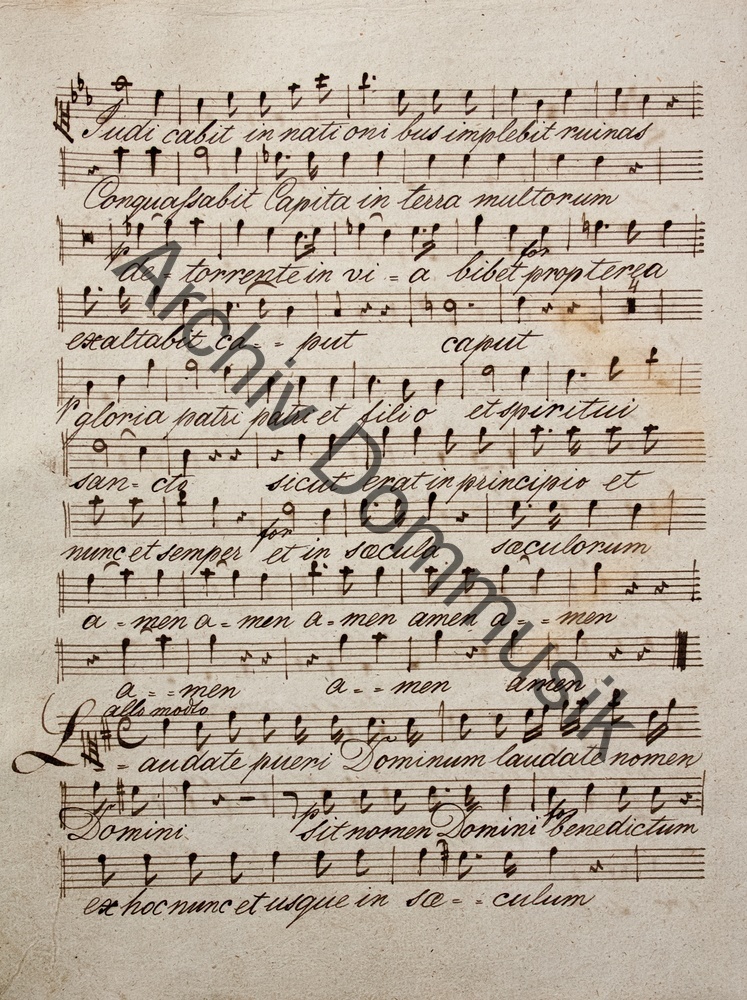 Judicabit in nationibus implebit ruinas
Conquaſsabit Capita in terra multorum
p for
de - torrente in vi = a bibet propterea
4
exaltabit ca - - put caput
gloria patri patri et filio et spiritui
san - cto sicut erat in principio et
for
nunc et semper et in sæcula sæculorum
a - men a = men a - men amen a = = men
a = = men a - - men amen
allo modto
Laudate pueri Dominum laudate nomen
p for
Domini sit nomen Domini benedictum
ex hoc nunc et usque in sæ - - culum
Archiv Dommusik